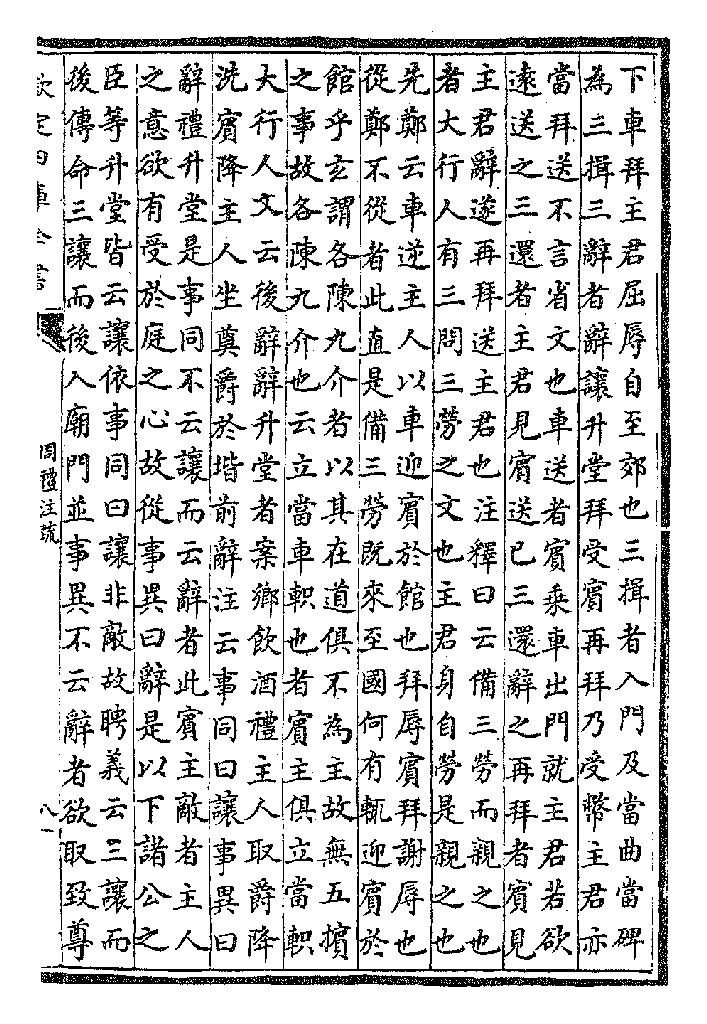 下車拜主君屈辱自至郊也三揖者入門及當曲當碑
為三揖三辭者辭讓升堂拜受賓再拜乃受幣主君亦
當拜送不言省文也車送者賓乘車出門就主君若欲
遠送之三還者主君見賓送已三還辭之再拜者賓見
主君辭遂再拜送主君也注釋曰云備三勞而親之也
者大行人有三問三勞之文也主君身自勞是親之也
先鄭云車逆主人以車迎賓於館也拜辱賓拜謝辱也
從鄭不從者此直是備三勞既來至國何有輒迎賓於
館乎玄謂各陳九介者以其在道俱不為主故無五擯
之事故各陳九介也云立當車軹也者賓主俱立當軹
大行人文云後辭辭升堂者案鄉飲酒禮主人取爵降
洗賓降主人坐奠爵於堦前辭注云事同曰讓事異曰
辭禮升堂是事同不云讓而云辭者此賓主敵者主人
之意欲有受於庭之心故從事異曰辭是以下諸公之
臣等升堂皆云讓依事同曰讓非敵故聘義云三讓而
後傳命三讓而後入廟門並事異不云辭者欲取致尊
欽定四庫全書
周禮注疏